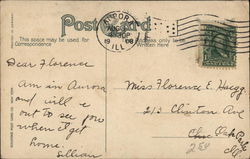 Post Card
AURORA
ILL
1908
This space may be used for
Correspondence
Address only to be
Written here
Dear Florence
Am in Aurora
and will
out to see you
when I get
home.
Lillian
Miss Florence E.
213 Clinton Ave
Oak Park
Ill